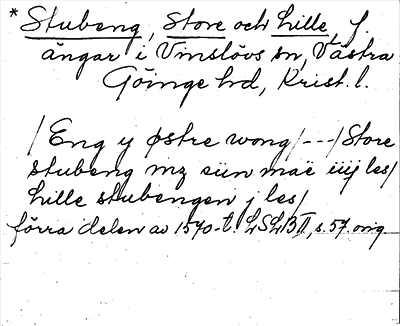 * Stubeng, Store och Lille, f.
ängar i Vinslövs sn, Västra
Göinge hd, Krist. l.
/ Eng y østre wong / --- / Store
stubeng mz siin maë iiij les /
Lille stubengen j les /
förra delen av 1570-t. LSLB II, s. 57. orig